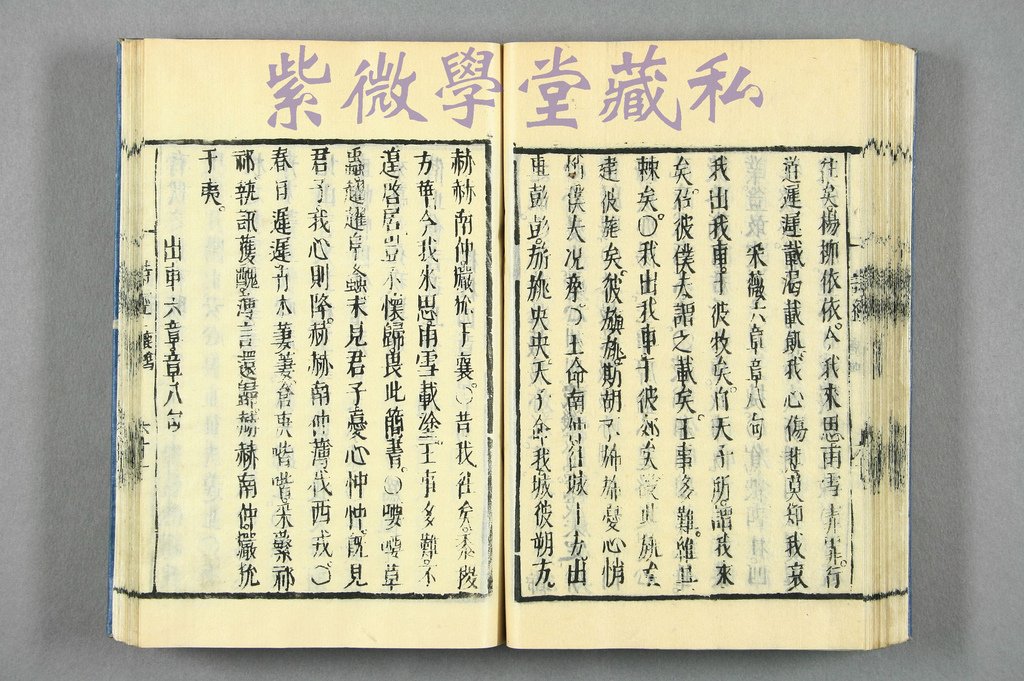 紫微學堂藏私
往矣。楊柳依依。今我來思。雨雪霏霏。行
道遲遲。載渴載飢。我心傷悲。莫知我哀
采薇六章章八句
我出我車。于彼牧矣。自天子所。謂我來
矣。召彼僕夫。謂之載矣。王事多難。維其
棘矣。○我出我車。于彼郊矣。設此旐矣
建彼旄矣。彼旟旐斯。胡不旆旆。憂心悄
悄。僕夫况瘁。○王命南仲。往城于方。出
車彭彭。旂旐央央。天子命我。城彼朔方。
赫赫南仲。玁狁于襄。○昔我往矣。黍稷
方華。今我來思。雨雪載塗。王事多難。不
遑啓居。豈不懷歸。畏此簡書。○喓喓草
蟲。趯趯阜螽。未見君子。憂心忡忡。旣見
君子。我心則降。赫赫南仲。薄伐西戎。○
春日遲遲。卉木萋萋。倉庚喈喈。采蘩祁
祁。執訊獲醜。薄言還歸。赫赫南仲。玁狁
于夷。
出車六章章八句
詩經